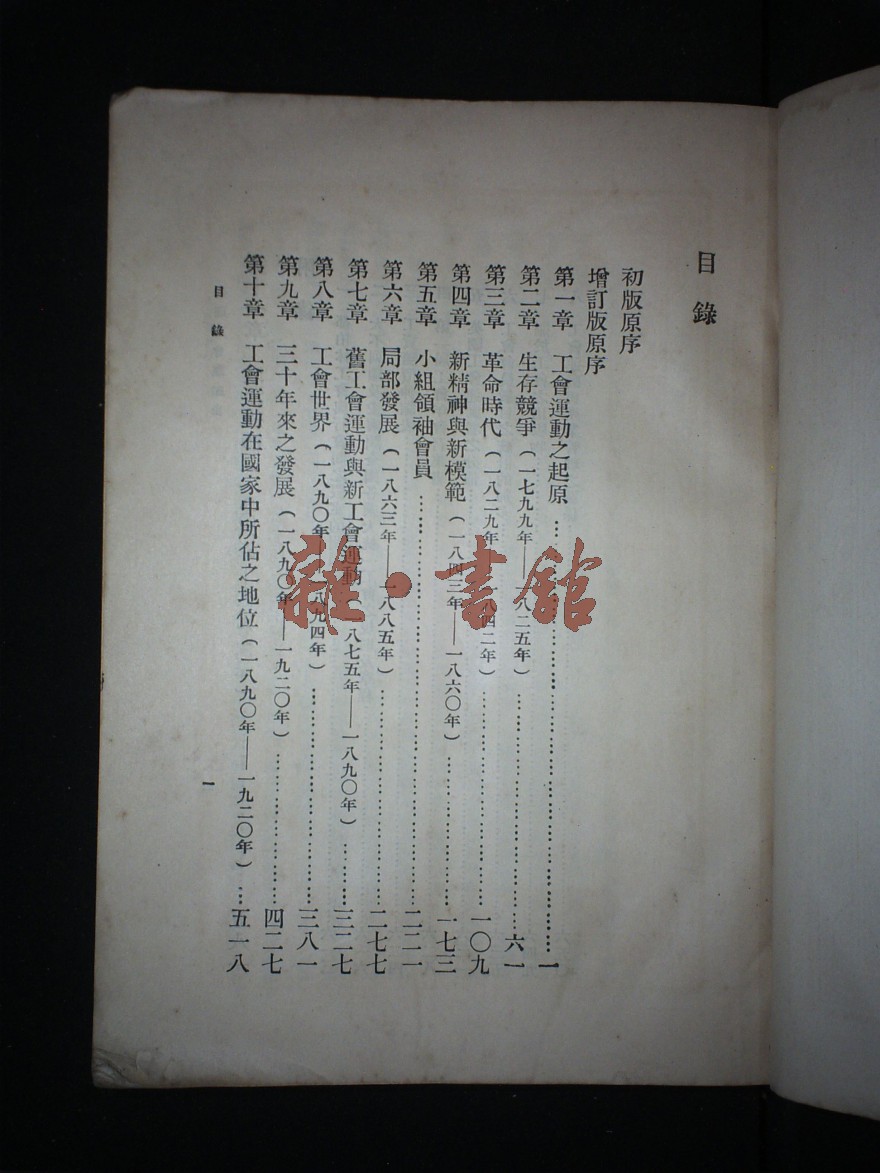 目錄
初版原序
增訂版原序
第一章 工會運動之起原……一
第二章 生存競爭(一七九九年——一八二五年)……六一
第三章 革命時代(一八二九年——一八四二年)……一〇九
第四章 新精神與新模範(一八四三年——一八六〇年)……一七三
第五章 小組領袖會員……二二一
第六章 局部發展(一八六三年——一八八五年)……二七七
第七章 舊工會運動與新工會運動(一八七五年——一八九〇年)……三二七
第八章 工會世界(一八九〇年——一八九四年)……三八一
第九章 三十年來之發展(一八九〇年——一九二〇年)……四二七
第十章 工會運動在國家中所佔之地位(一八九〇年——一九二〇年)…五一八
目錄
一
雜·書館